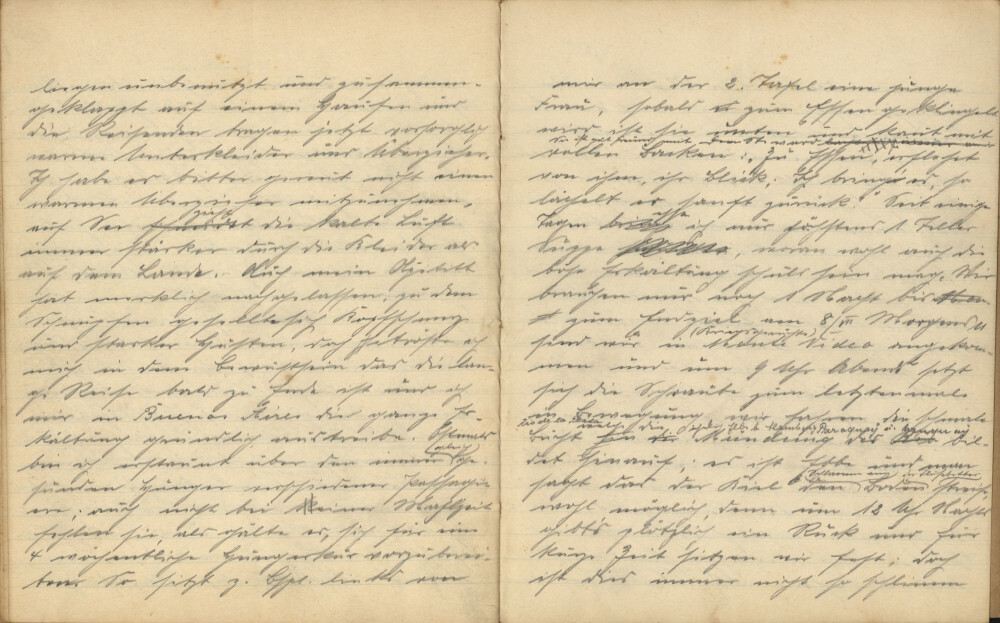 liegen unbenutzt und zusammen-
geklappt auf einem Haufen und
die Reisenden tragen jetzt vorsorglich
warme Unterkleider und Überzieher.
Ich habe es bitter gereut nicht einen
warmen Überzieher mitzunehmen,
auf See zieht die kalte Luft
immer stärker durch die Kleider als
auf dem Lande. Auch mein Appetitt
hat merklich nachgelassen, zu dem
Schnupfen gesellte sich
und starker Husten, doch getröste ich
mich in dem Bewußtsein das die lan-
ge Reise bald zu Ende ist und ich
mir in Buenos Aires die ganze Er-
kältung gründlich austreibe. Öfenmals
bin ich erstaunt über den immer gleich ge-
sunden Hunger verschiedener Passagie-
ere; auch nicht bei einer Mahlzeit
fehlten sie, als gälte es, sich für eine
4 wöchentliche Hungerkur vorzuberei-
ten. So sitzt z. Bspl. links von
mir an der 2. Tafel eine junge
Frau, sobald zum Essen geklingelt
wird ist sie unten und kaut mit
vollen Backen; "Zu Essen", erfleht
von ihm, ihr Blick; "Ich bringe es, so
lächelt er sanft zurück." Seit einige
Tagen ich nur höchstens 1 Teller
Suppe, woran wohl auch die
böse Erkältung schuld sein mag. Wir
brauchen nur noch 1 Nacht bis
zum Endziel am 8/III Morgens
sind wir in Monte Video angekom-
men und um 9 Uhr Abends setzt
sich die Schraube zum letztenmale
in Bewegung wir fahren die schmale
Bucht die Mündung des bil-
det hinauf; es ist Ebbe und man
sagt das der Kiel den Boden streift
wohl möglich, denn um 12 Uhr Nachts
gibts plötzlich ein Rück und für
kurze Zeit sitzen wir fest; doch
ist dies immer nicht so schlimm